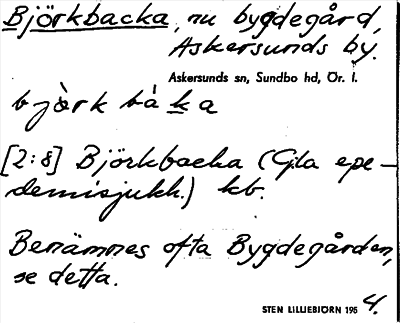 Björkbacka, nu bygdegård,
Askersunds by.
Askersunds sn, Sundbo hd, Ör. l.
bjòrk bà ka
[2:8] Björkbacka (G:la epe-
demisjukh.) kb.
Benämnes ofta Bygdegården,
se detta.
STEN LILLIEBJÖRN 195 4.